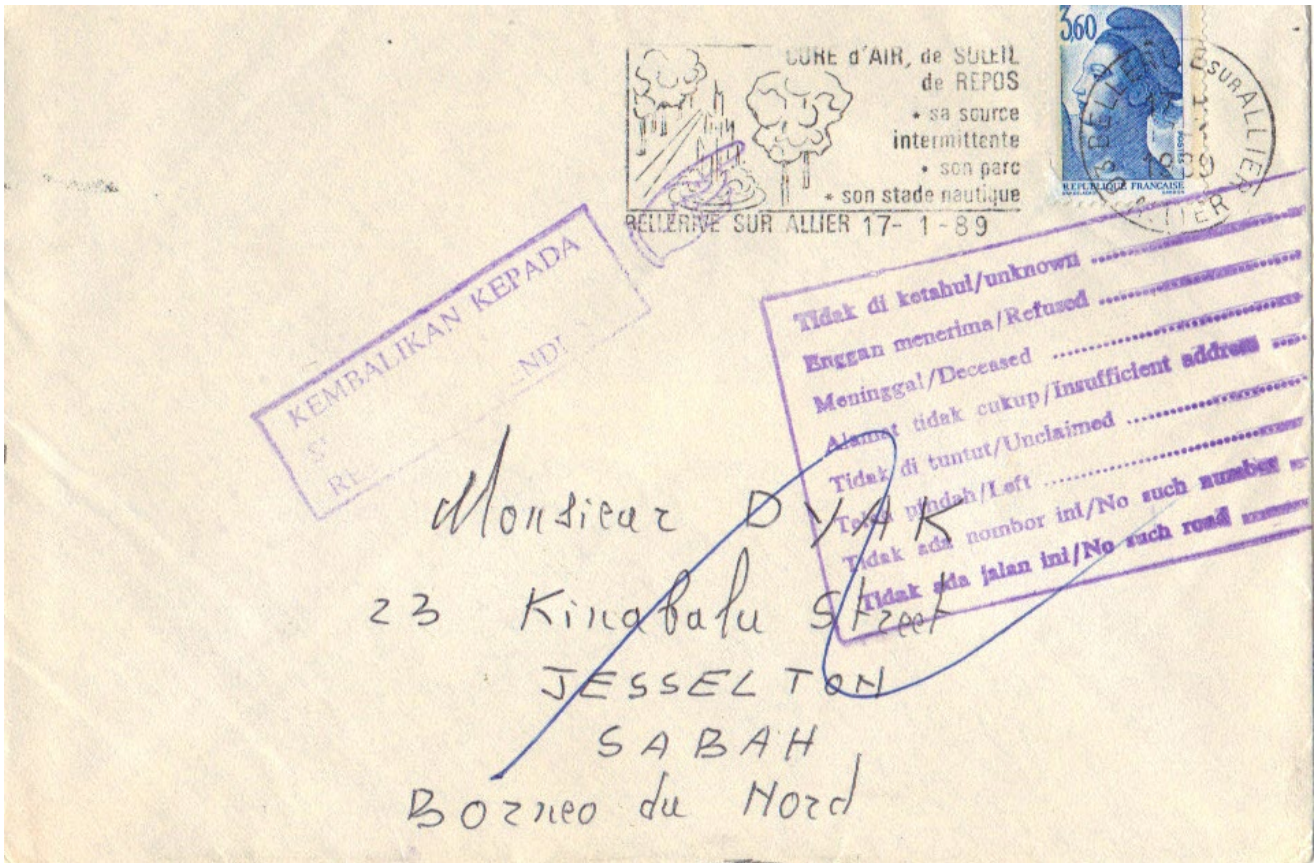 3,60
CURE d'AIR, de SOLEIL
de REPOS
• sa source
intermittente
• son parc
• son stade nautique
BELLERIVE SUR ALLIER 17- 1 -89
RÉPUBLIQUE FRANÇAISE
03 BELLERIVE SUR ALLIER
17
1989
ALLIER
KEMBALIKAN KEPADA
Tidak di ketahui/unknown
Enggan menerima/Refused
Meninggal/Deceased
Alamat tidak cukup/Insufficient address
Tidak di tuntut/Unclaimed
Telah pindah/Left
Tidak ada nombor ini/No such number
Tidak ada jalan ini/No such road
Monsieur DYAK
23 Kinabalu Street
JESSELTON
SABAH
Borneo du Nord